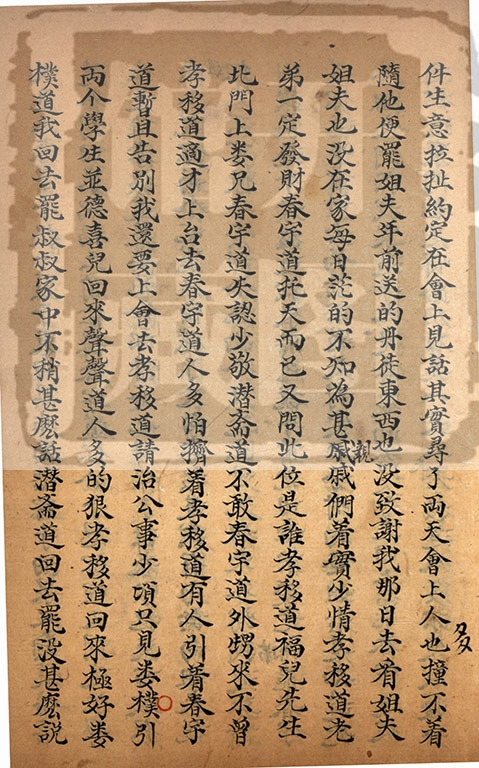 件生意拉扯約定在會上見話其實尋了兩天會上人也多撞不着
隨他便罷姐夫年前送的丹徒東西也没致謝我那日去看姐夫
姐夫也没在家每日的不知為甚親戚們着實少情孝移道老
弟一定發財春宇道托天而已又問此位是誰孝移道福兒先生
北門上婁兄春宇道失認少敬潛齋道不敢春宇道外甥來不曾
孝移道適才上台去春宇道人多怕擠着孝移道有人引着春宇
道暫且告別我還要上會去孝移道請治公事少頃只見婁樸引
両个學生並德喜兒回來聲聲道人多的狠孝移道回來極好婁
樸道我回去罷叔叔家中不稍甚麽話潛齋道回去罷没甚麽説